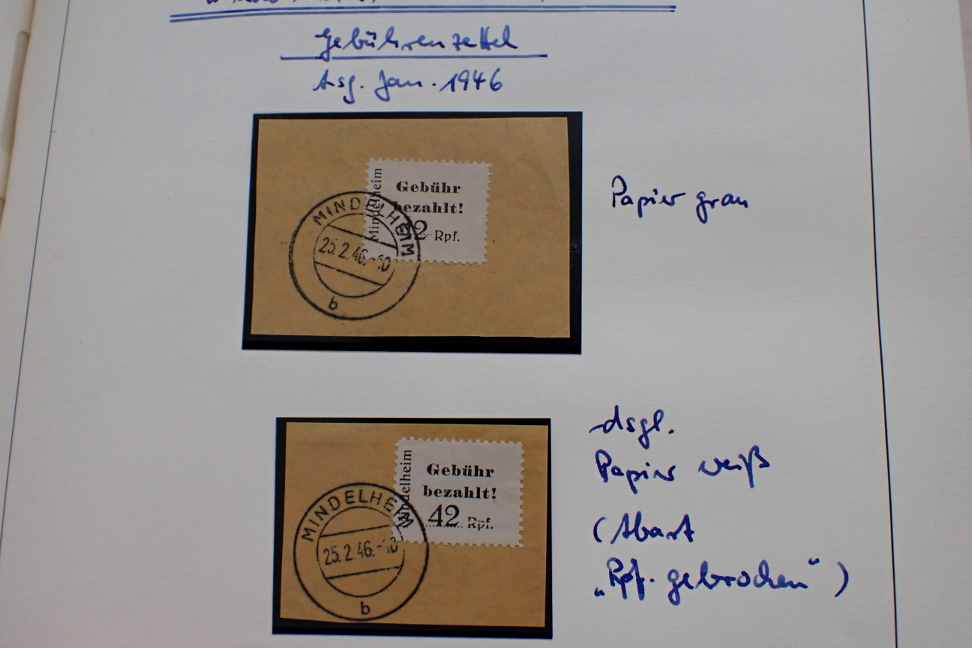 Gebührenzettel
Asg. Jan. 1946
Mindelheim
Gebühr
bezahlt!
2 Rpf.
MINDELHEIM
25.2.46.-10
b
Papier grau
Mindelheim
Gebühr
bezahlt!
42 Rpf.
MINDELHEIM
25.2.46.-18
b
dsgl.
Papier weiß
(Abart
„Rpf. gebrochen")